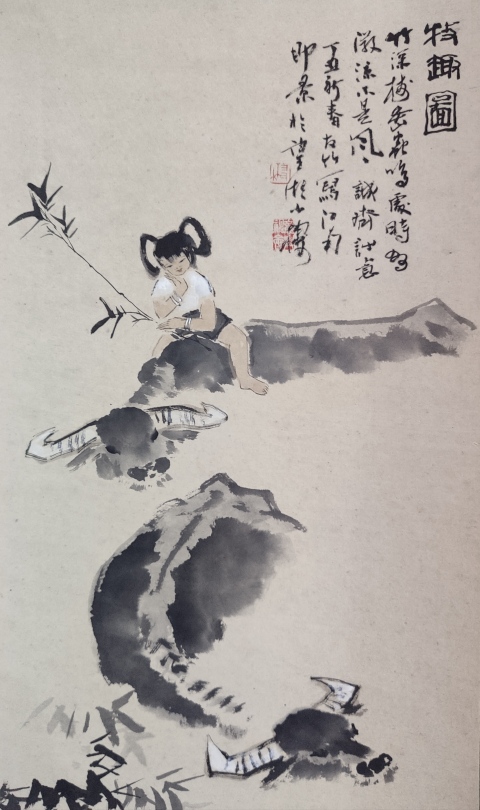 牧趣圖
竹深樹密蟲鳴處時有
微涼不是風 誠齋詩意
丁丑新春 寫江南
即景於望湖小